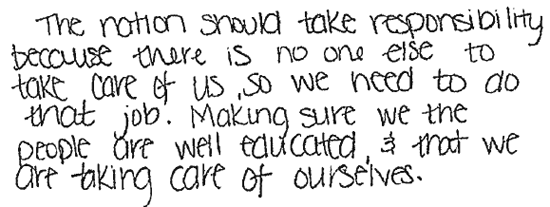 The nation should take responsibility
because there is no one else to
take care of us, so we need to do
that job. Making sure we the
people are well educated, & that we
are taking care of ourselves.